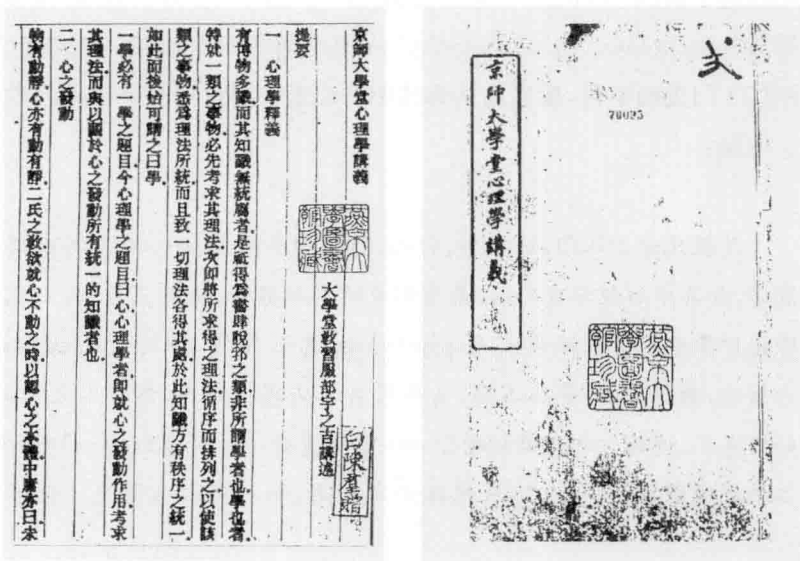 京師大學堂心理學講義
大學堂教習服部宇之吉講述
提要
一 心理學釋義
有博物多識而其知識無統屬者是祇得爲書肆說郛之類非所謂學者也學也者
特就一類之事物必先考求其理法次即將所求得之理法循序而排列之以使該
類之事物悉爲理法所統而且致一切理法各得其處於此知識方有秩序之統一
如此而後始可謂之曰學
一學必有一學之題目今心理學之題目曰心心理學者即就心之發動作用考求
其理法而與以關於心之發動所有統一的知識者也
二 心之發動
物有動靜心亦有動有靜二氏之敎欲就心不動之時以認心之本體中庸亦曰未
燕京大
學圖書
館珍藏
京師大學堂心理學講義
76095
燕京大
學圖書
館珍藏